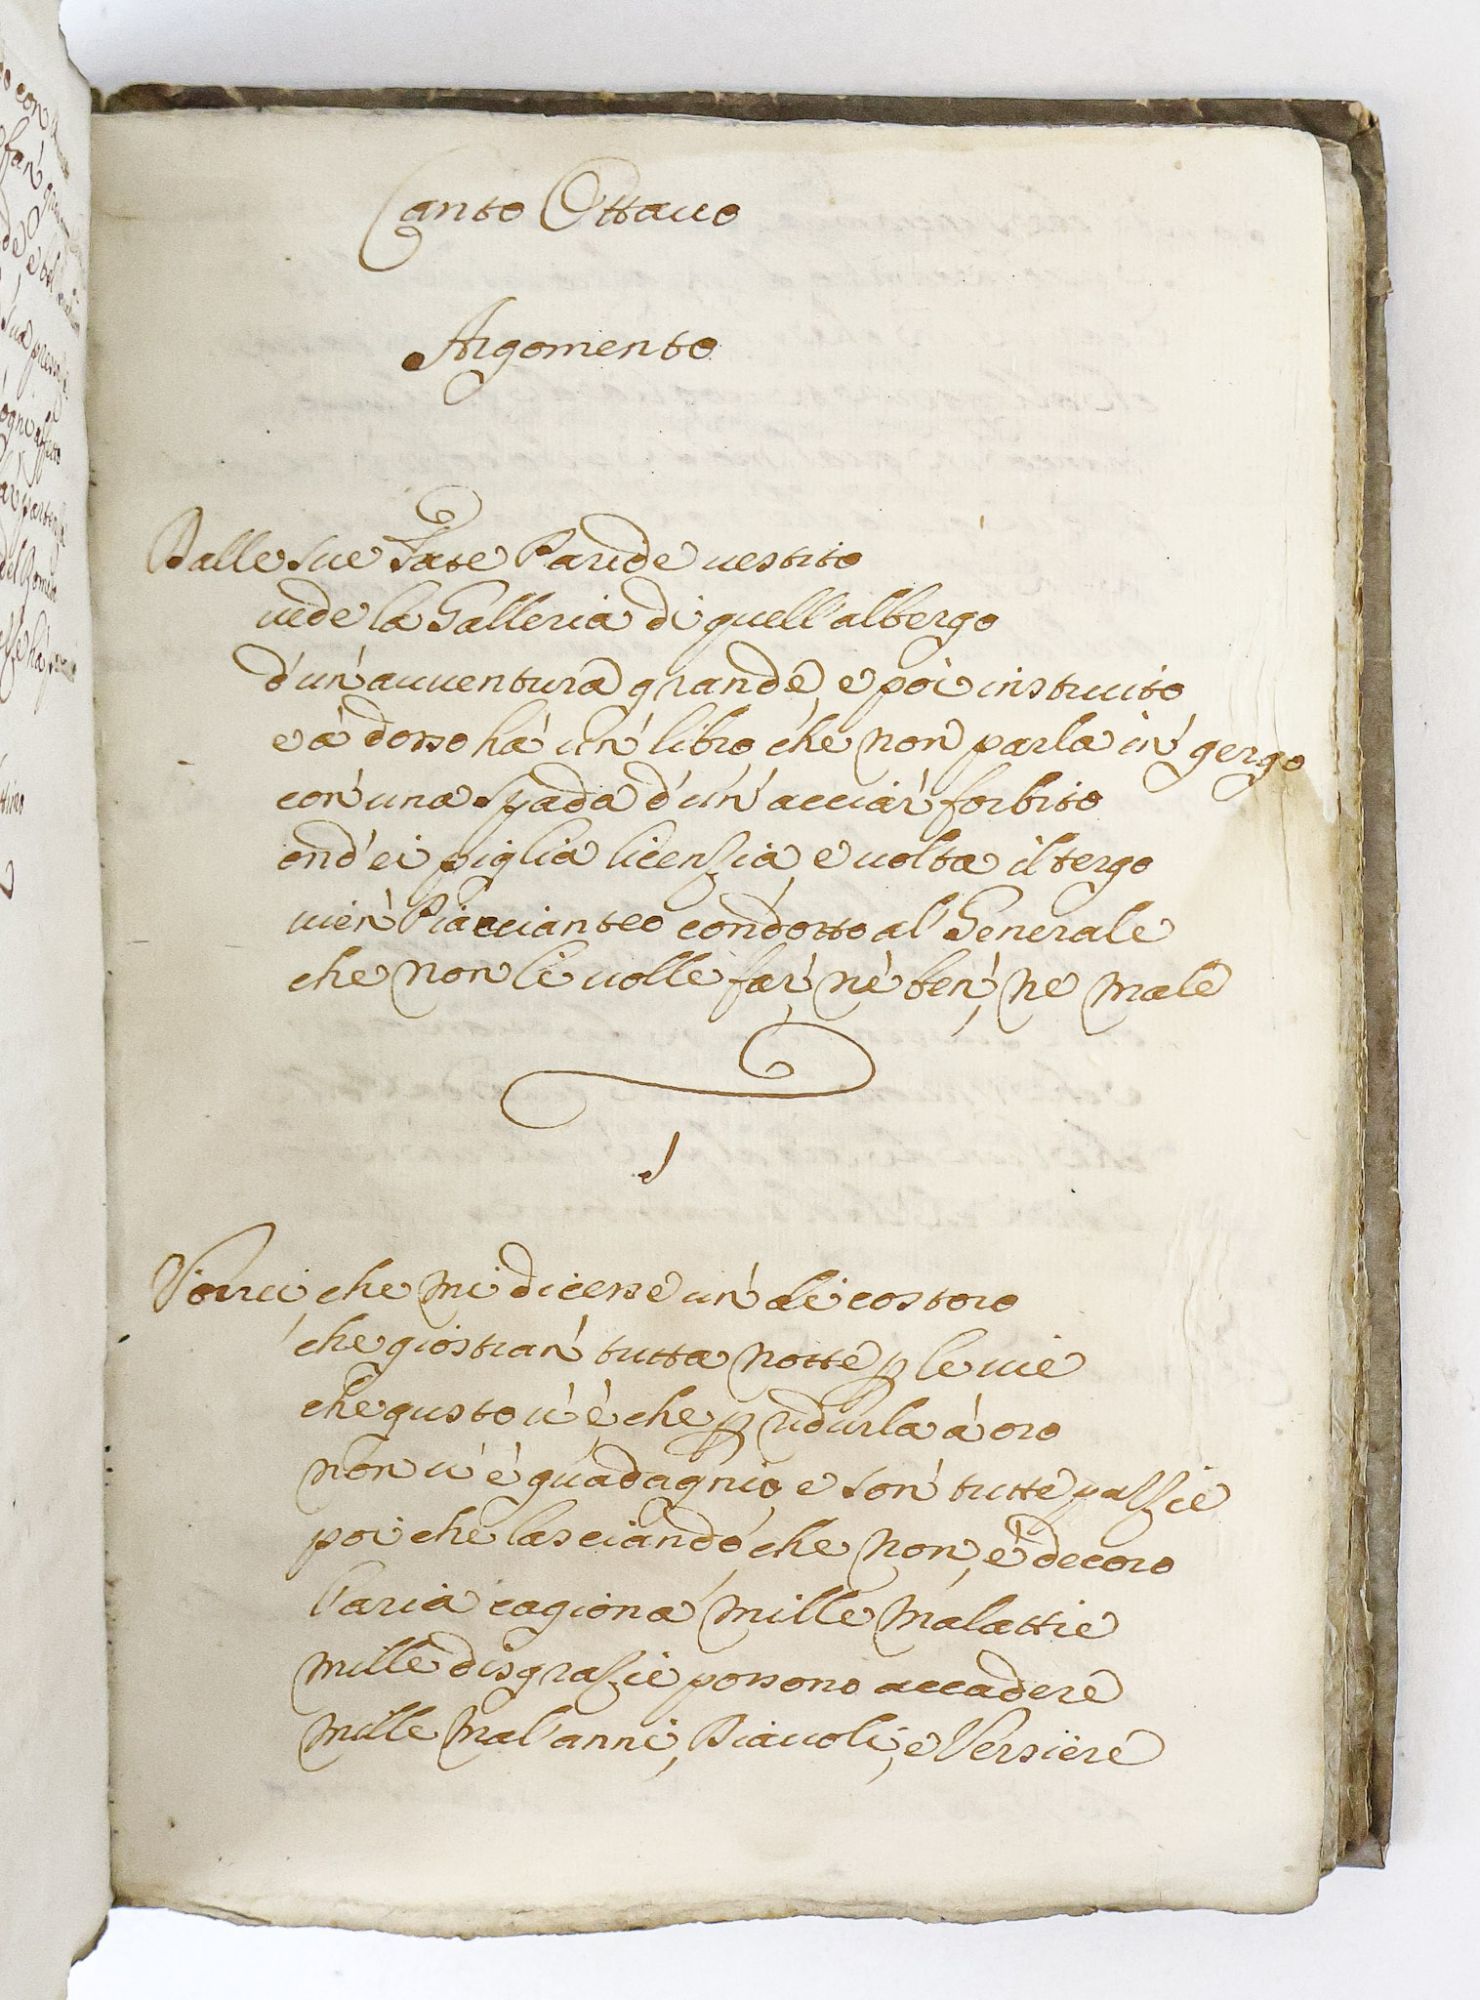 Canto Ottauo
Argomento
Dalle sue Fate Paride uestito
uede la Galleria di quell'albergo
d'un' auuentura grande, e poi instruito
e à dosso hà un' libro, che non parla in' gergo
con' una spada d'un' acciar' forbito
ond' ei piglia licenzia, e uolta il tergo
uien' Piaccianteo condotto al' Generale
che non li uolle far' nè ben', ne male
1
Vorrei, che mi dicesse un' di costoro
che giostran' tutta notte p le uie
che gusto u' è, che p ridurla à oro
non u' è guadagnio, e son' tutte pazzie
poi che lasciando, che non, è decoro
l'aria cagiona mille malattie
mille disgrazie possono accadere
mille mal'anni, Diauoli, e Versiere
con
fan'
e
sua
ogni
del